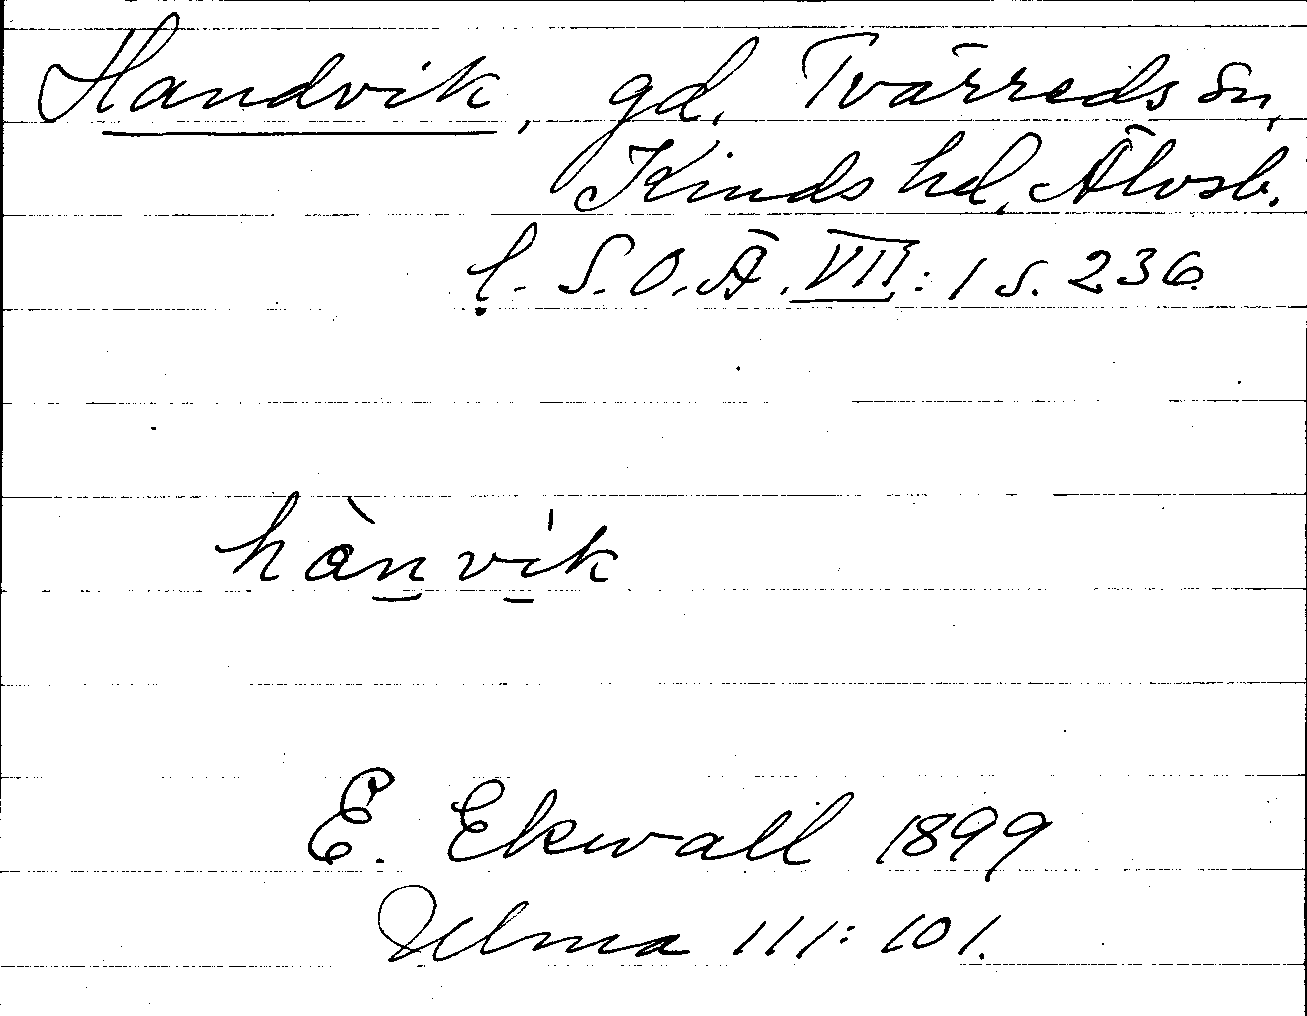 Handvik, gd. Tvärreds sn,
Kinds hd, Älvsb.
l. S.O.Ä. VII:1 s. 236
hànvi̍k
E. Ekwall 1899
Ulma 111:101.